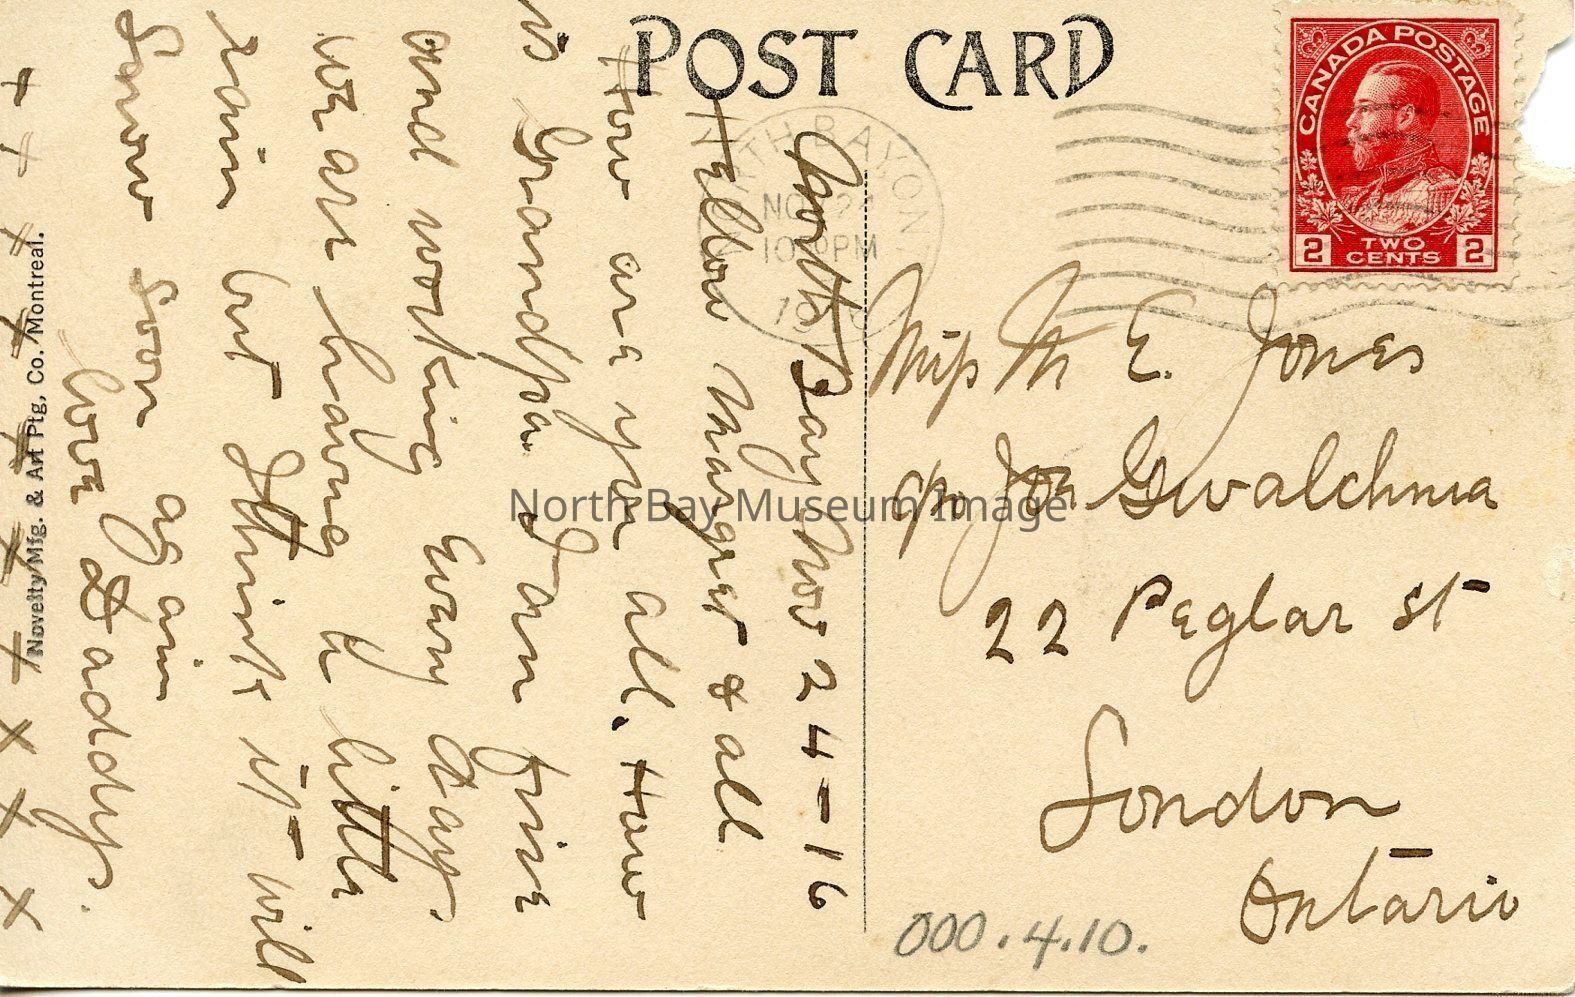 POST CARD
CANADA POSTAGE
2 TWO CENTS 2
NORTH BAY, ONT
NOV 24
10 PM
North Bay Nov 24-16
Hellow Margret & all
How are you all. How
is Grandpa. I am fine
and working every day.
we are having a little
rain but I think it will
snow soon again
love Daddy.
+ + + + + + + + x x x
Miss M E. Jones
c/o Joe Gwalchma
22 Peglar St
London
Ontario
000.4.10.
Novelty Mfg. & Art Ptg, Co. Montreal.
North Bay Museum Image